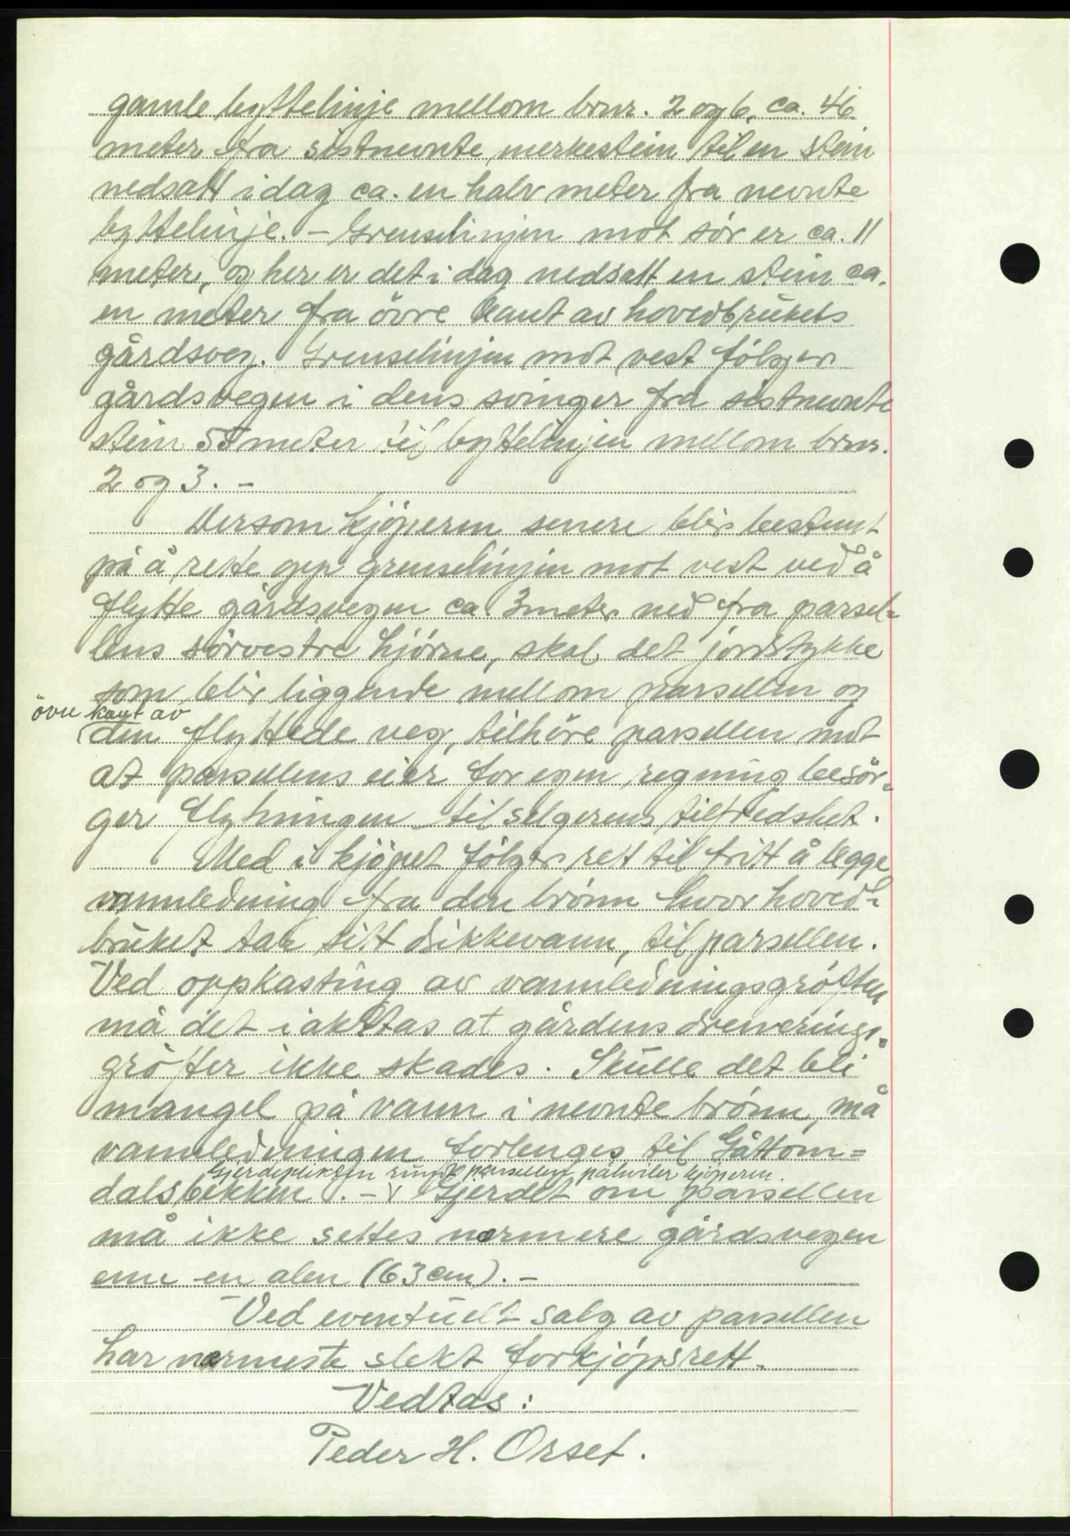 gamle byttelinje mellom brnr. 2 og 6, ca. 46
meter fra sistnevnte merkestein til en stein
nedsatt i dag ca. en halv meter fra nevnte
byttelinje. – Grenselinjen mot sör er ca. 11
meter, og her er det i dag nedsatt en stein ca.
en meter fra övre kant av hovedbrukets
gårdsveg. Grenselinjen mot vest fölger
gårdsvegen i dens svinger fra sistnevnte
stein 55 meter til byttelinjen mellom brnr.
2 og 3. –
Dersom kjöperen senere blir bestemt
på å rette opp grenselinjen mot vest ved å
flytte gårdsvegen ca. 3 meter ned fra parsel-
lens sörvestre hjörne, skal det jordstykke
som blir liggende mellom parsellen og
övre kant av
den flyttede veg, tilhöre parsellen mot
at parsellens eier for egen regning besör-
ger flytningen til selgerens tilfredshet.
Med i kjöpet fölger rett til fritt å legge
vannledning fra den brönn hvor hoved-
bruket tar sitt drikkevann, til parsellen.
Ved oppkasting av vannledningsgröften
må det iakttas at gårdens drenerings-
gröfter ikke skades. Skulle det bli
mangel på vann i nevnte brönn, må
vannledningen forlenges til Gåttom=
Gjerdeplikten rundt parsellen påhviler kjöperen.
dalsbekken. – v Gjerdet om parsellen
må ikke settes nærmere gårdsvegen
enn en alen (63 cm). –
Ved eventuelt salg av parsellen
har nærmeste slekt forkjöpsrett.
Vedtas:
Peder H. Orset.